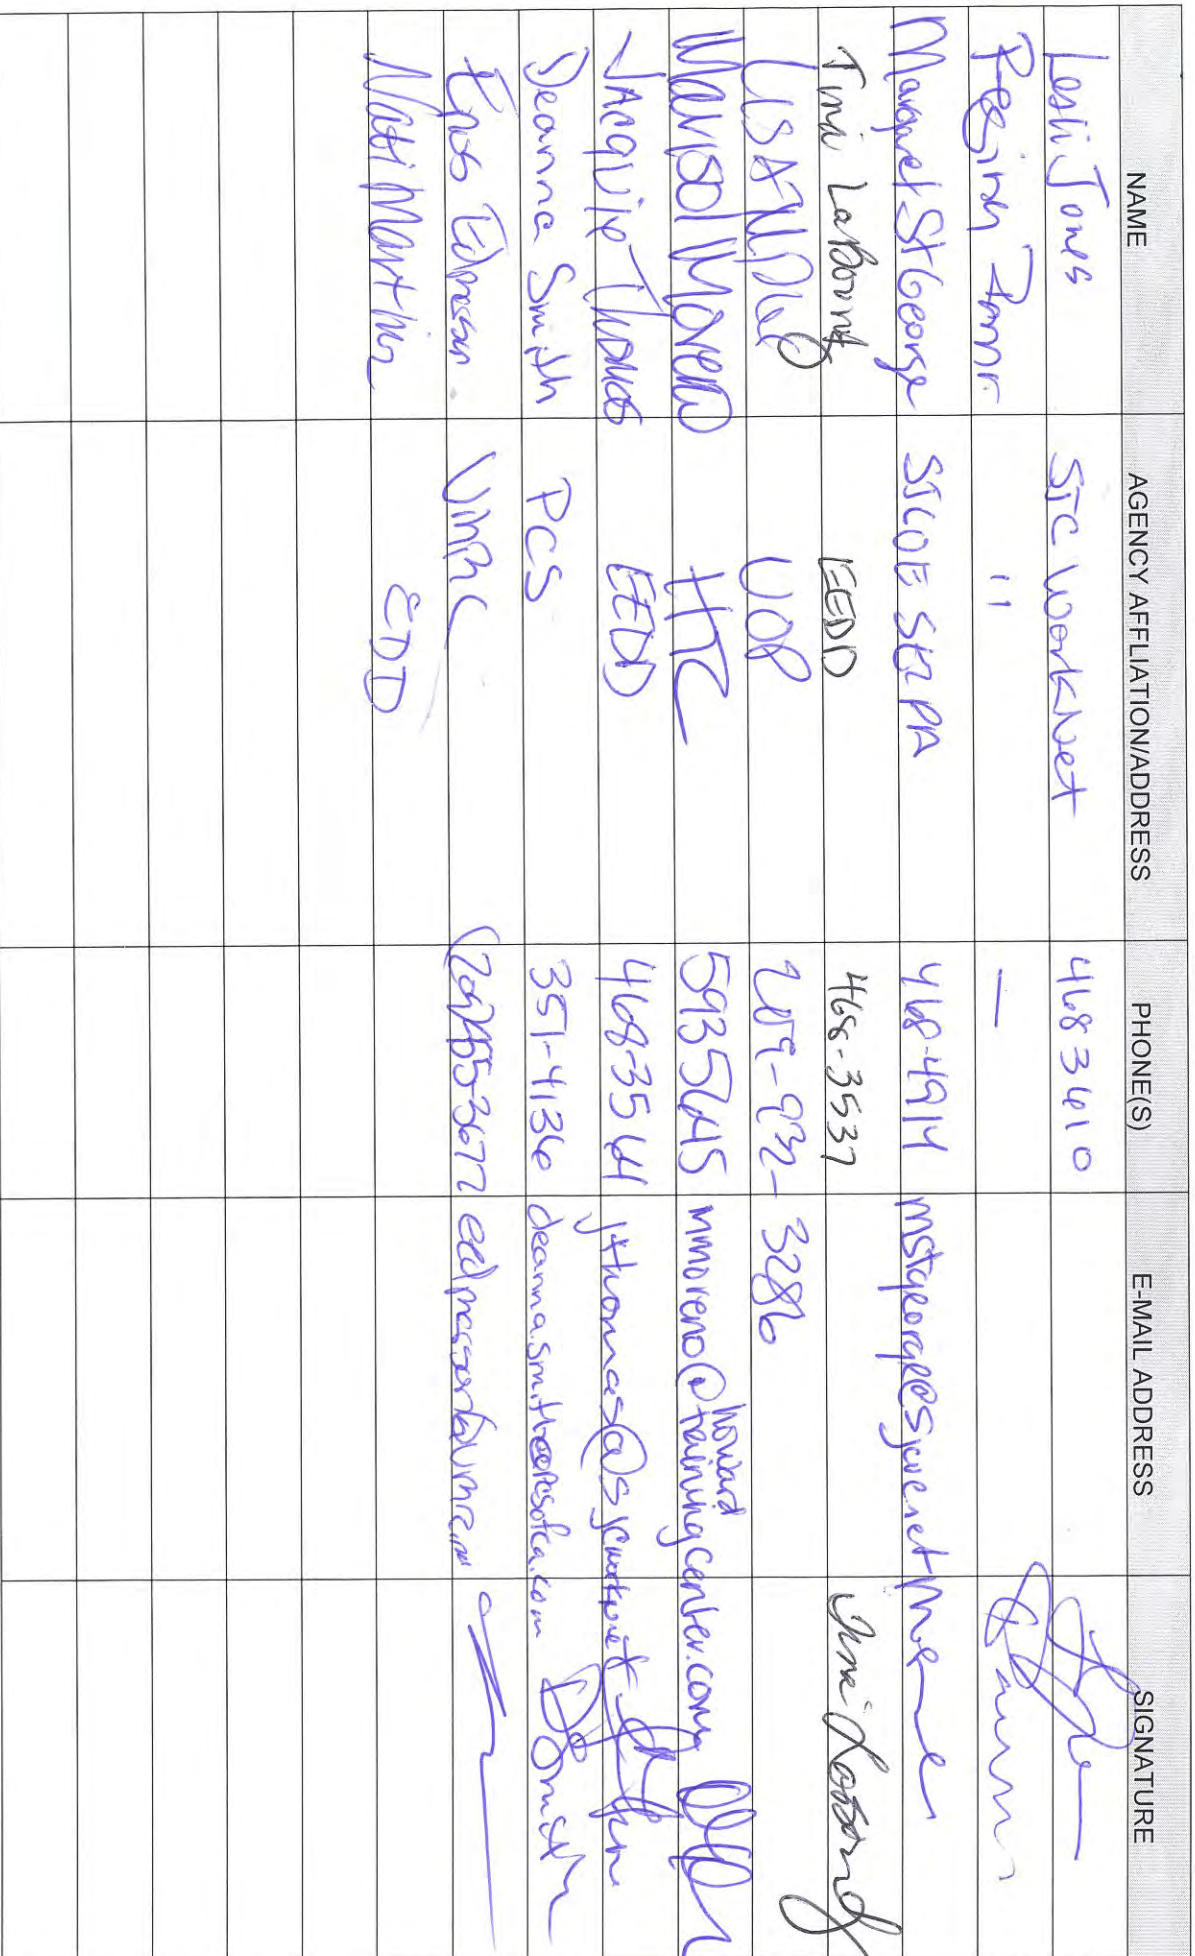 NAME AGENCY AFFLIATION/ADDRESS PHONE(S) E-MAIL ADDRESS SIGNATURE
Lesli Jones SJC WorkNet 468 3610
Regina " —
Margaret St George SJCOE SELPA 468-4914 mstgeorge@sjcoe.net
Timi LaBounty EEDD 468-3537 Timi LaBounty
UOP 209-932-3286
Marisol Moreno HTC 5935645 mmoreno@howardtrainingcenter.com
Jacquie Thomas EEDD 468-3564 jthomas@sjcworknet
Deanna Smith PCS 351-4136 deanna.smith@pcsofca.com D Smith
Enos Edmerson VMRC (209)955-3677
EDD